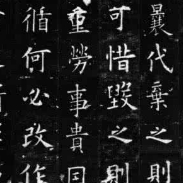 曩代棄之則
可惜毀之則
重勞事貴因
循何必改作